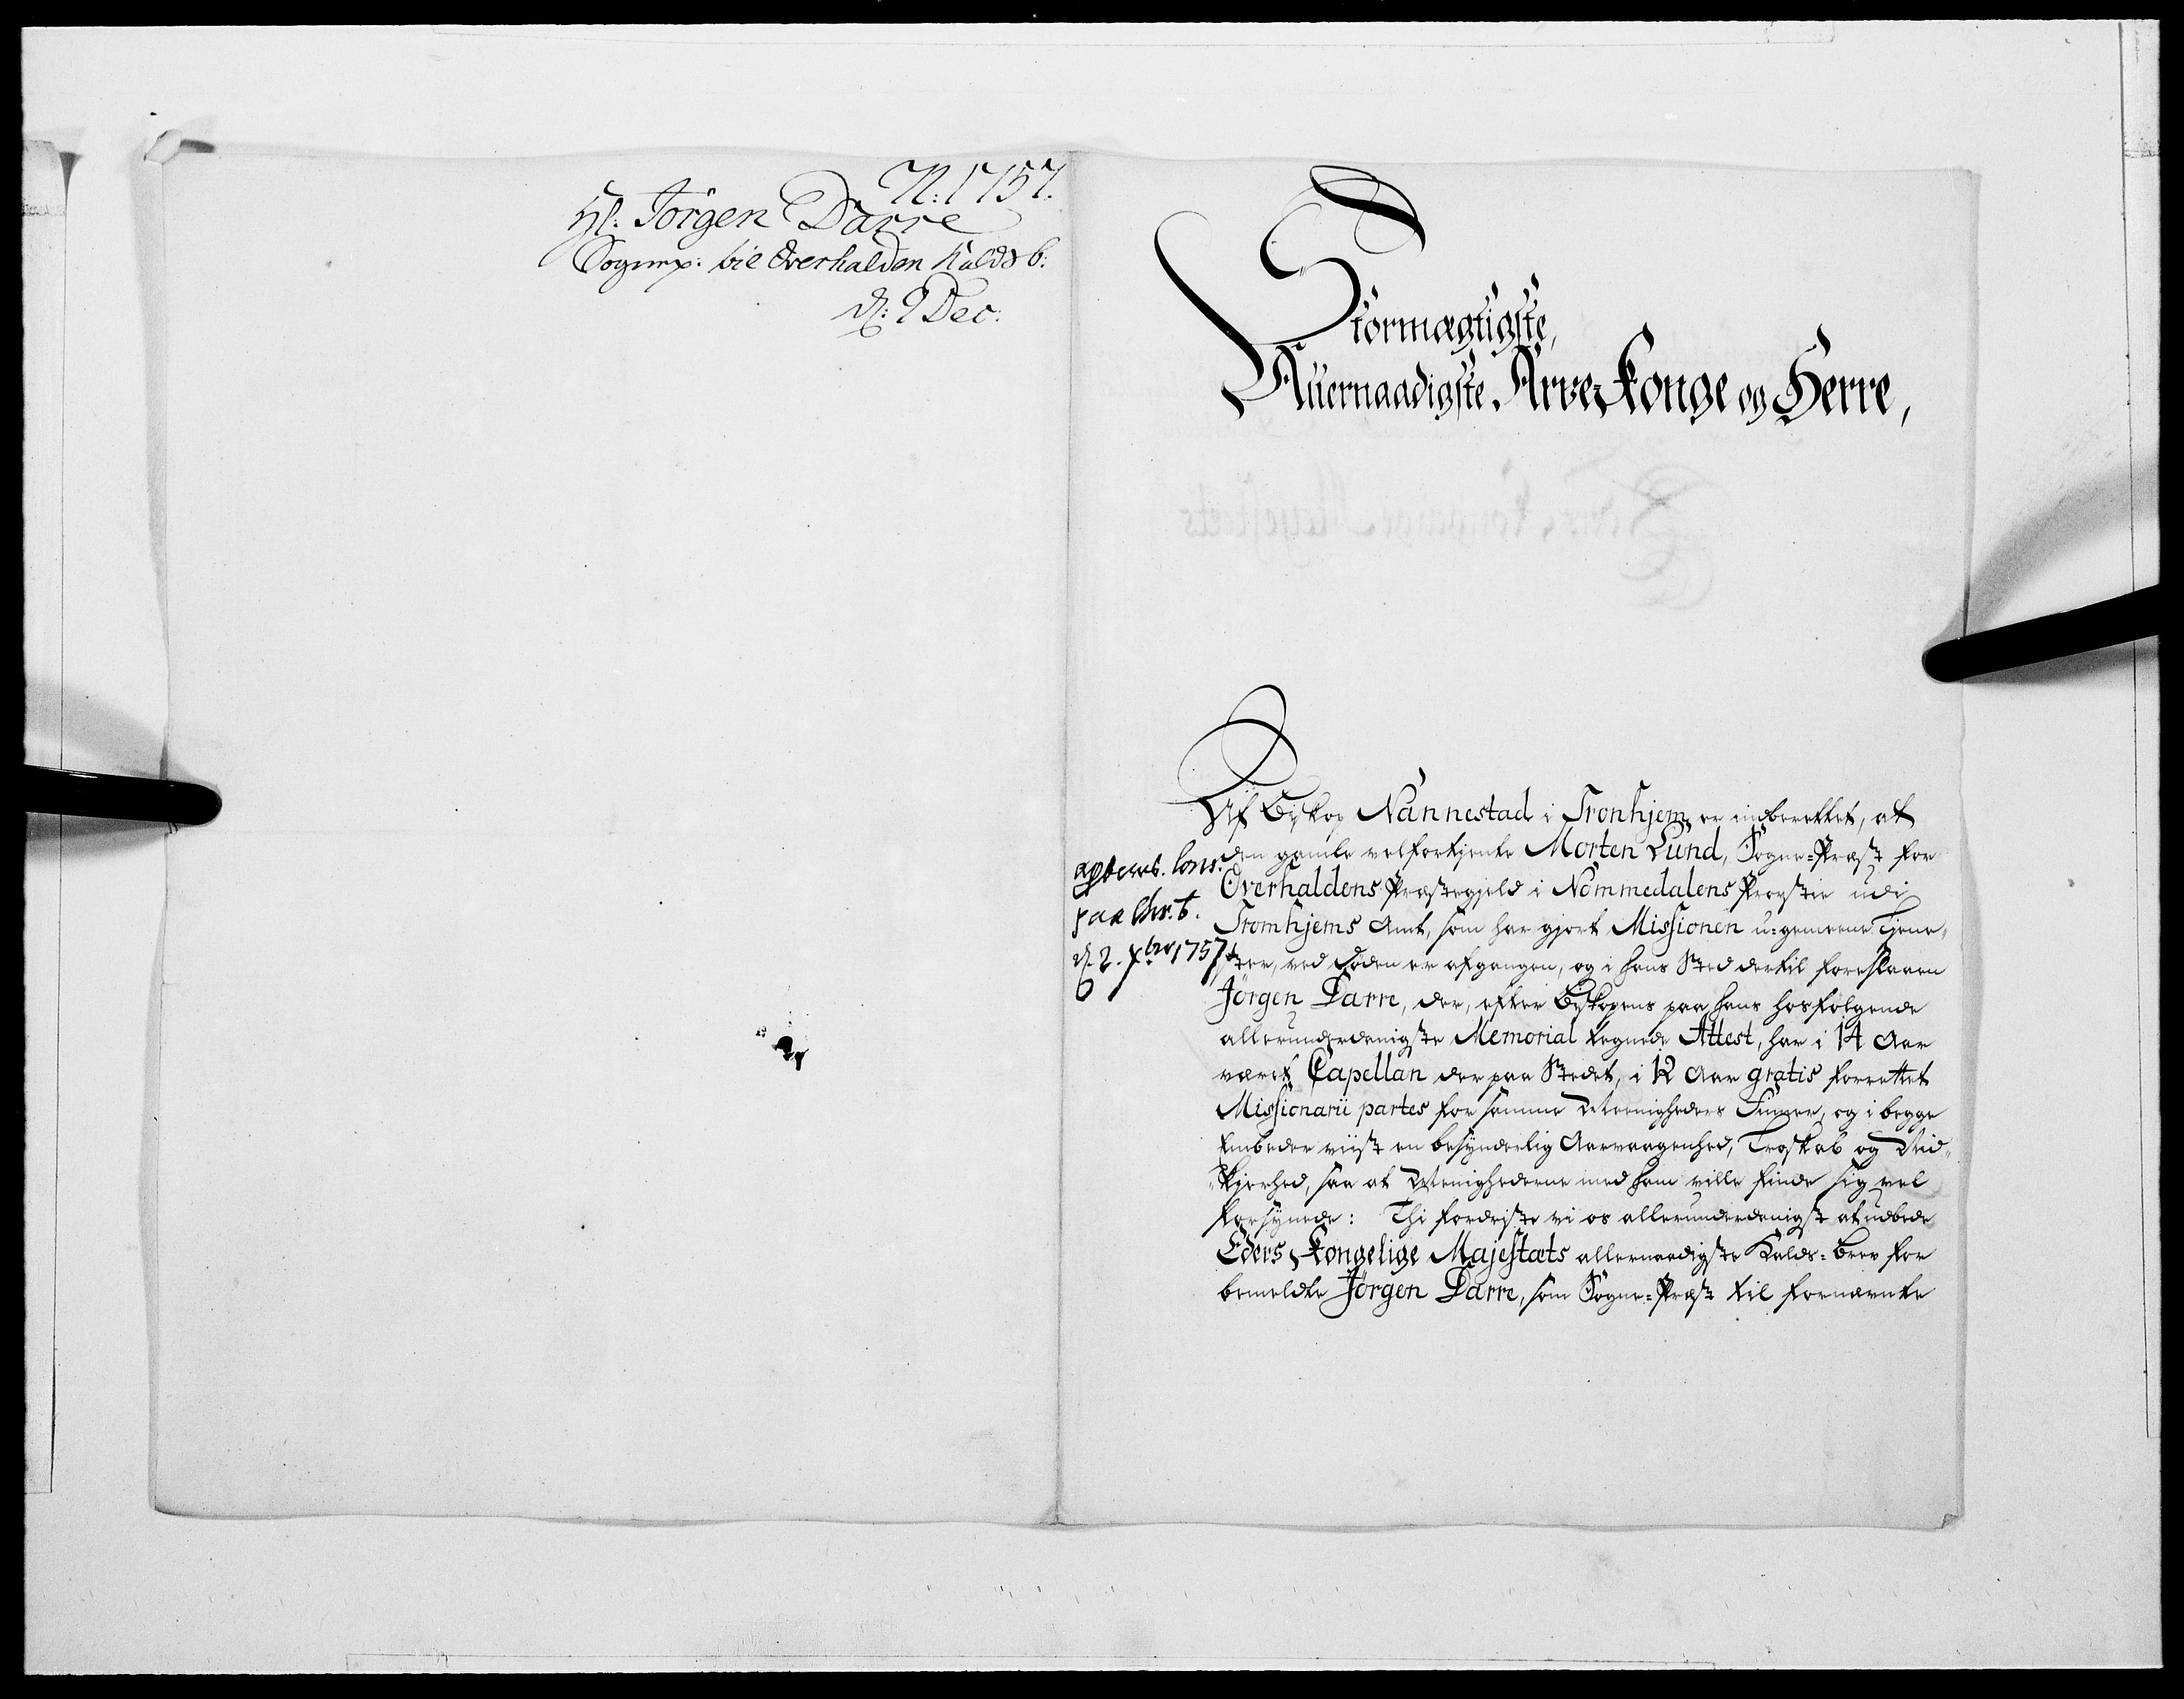 N: 1757.
Hl: Jörgen Darre
Sognepr: til Overhalden Kalds b:
d: 2 Dec:
Stormægtigste,
Allernaadigste Arve-Konge og Herre,
Af Biskop Nannestad i Tronhjem er indberettet, at
den gamle velfortjente Morten Lund, Sogne-Præst for
Overhaldens Præstegjeld i Nommedalens Provstie udi
Tromhjems Amt, som har gjort Missionen u-gemeene Tjene-
ster, ved Døden er afgangen, og i hans Sted dertil foreslaaen
Jörgen Darre, der, efter Biskopens paa hans hosfølgende
allerunderdanigste Memorial tegnede Attest, har i 14 Aar
været Capellan der paa Stedet, i 12 Aar gratis forrettet
Missionarii partes for samme Meenigheders Finner, og i begge
Embeder viist en besynderlig Aarvaagenhed, Troskab og Nid-
kjerhed, saa at Meenighederne med ham ville finde sig vel
forsynede: Thi fordriste vi os allerunderdanigst at udbede
Eders Kongelige Majestæts allernaadigste Kalds-Brev for
bemeldte Jörgen Darre, som Sogne-Præst til fornævnte
paa Chr.b.
d. 2. Xbr 1757